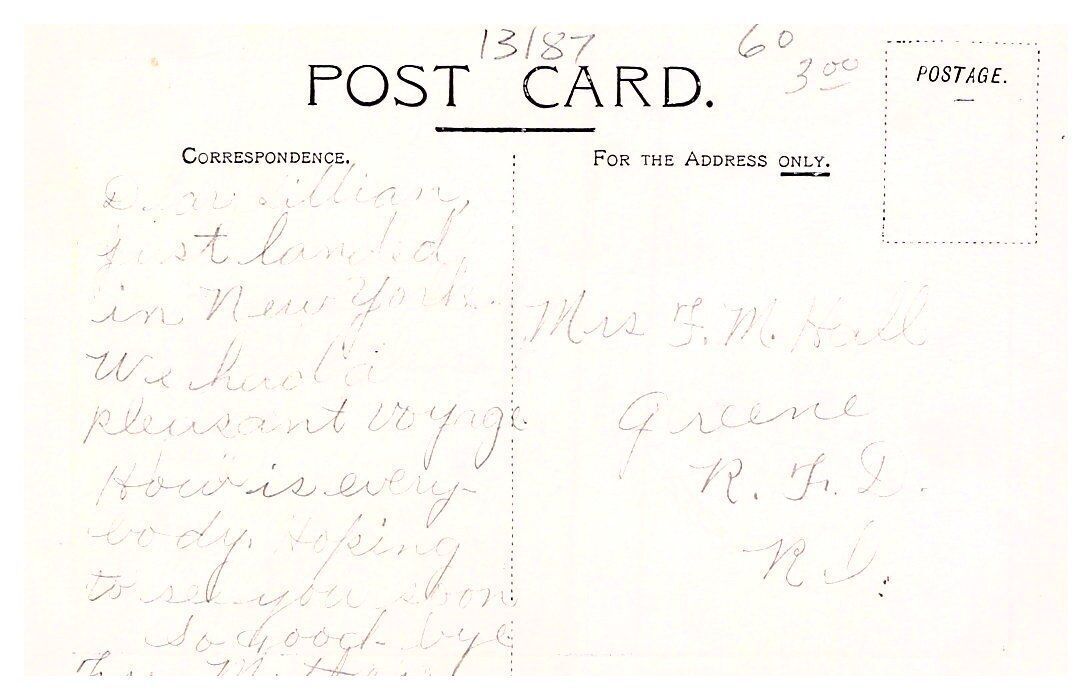 13187
60
3 00
POST CARD.
POSTAGE.
CORRESPONDENCE.
FOR THE ADDRESS ONLY.
Dear Lillian,
just landed
in New York.
We had a
pleasant voyage
How is every-
body. Hoping
to see you soon
So good-bye
Mother
Mrs F. M. Hall
Greene
R. F. D.
R I.